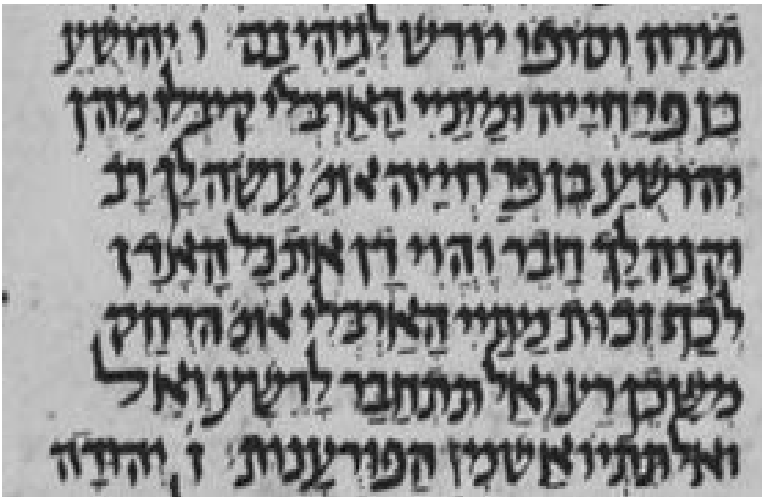 תּוֹרָה וְסוֹפוֹ יוֹרֵשׁ לְגֵיהִינָּם׃ ו יְהוֹשֻׁעַ
בֶּן פְּרַחְיָיה וּמַתַּיי הָאַרְבֵּלִי קִיבְּלוּ מֵהֶן
יְהוֹשֻׁעַ בֶּן פְּרַחְיָיה אומ׳ עֲשֵׂה לָךְ רַב
וּקְנֵה לָךְ חָבֵר וֶהֱוֵי דָן אֶת כָּל הָאָדָן
לְכַף זְכוּת מַתַּיי הָאַרְבֵּלִי אומ׳ הַרְחֵק
מִשָּׁכֵן רַע וְאַל תִּתְחַבַּר לָרָשָׁע וְאַל
וְאַל תִּתְיָואַשׁ מִן הַפּוּרְעָנוּת׃ ז יְהוּדָה